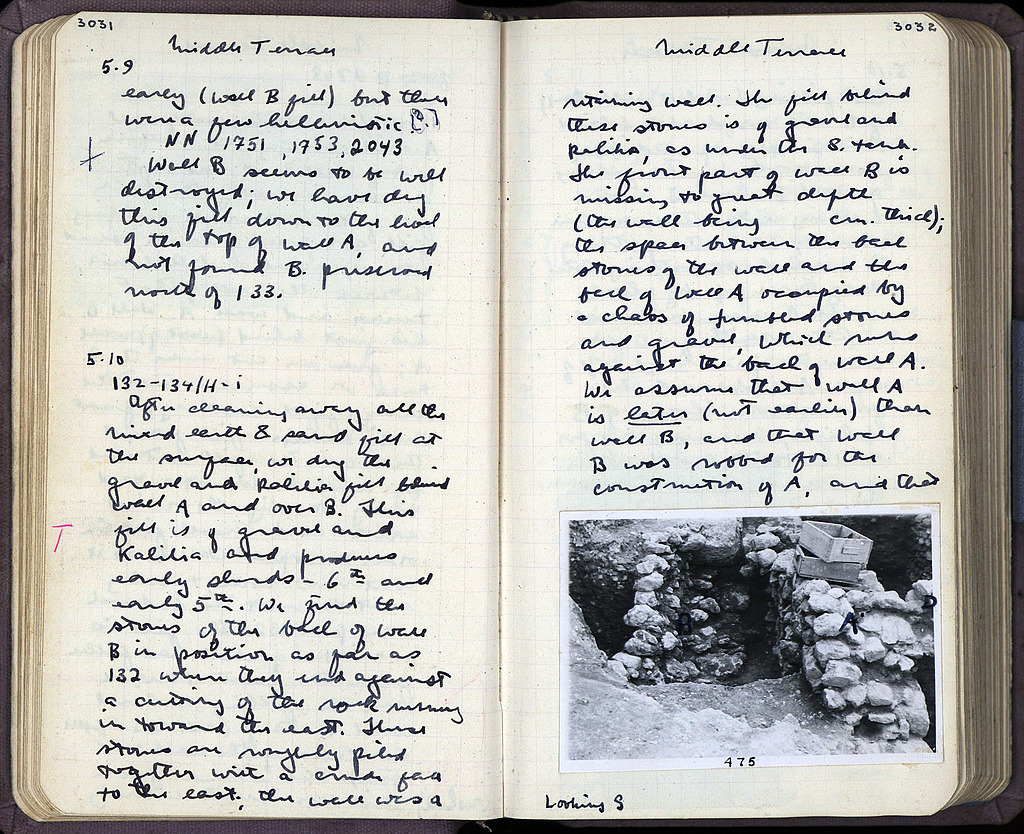 3031
Middle Terrace
5.9
early (wall B fill) but there
were a few hellenistic [?]
NN 1751, 1753, 2043
Wall B seems to be well
destroyed; we have dug
this fill down to the level
of the top of wall A, and
not found B. preserved
north of 133.
5.10
132-134/H-i
After cleaning away all the
mixed earth & sand fill at
the surface, we dug the
gravel and kalilia fill behind
wall A and over B. This
T
fill is of gravel and
Kalilia and produces
early sherds - 6th and
early 5th. We find the
stones of the back of wall
B in position as far as
132 where they end against
a cutting of the rock running
in toward the east. These
stones are roughly piled
together with a crude face
to the east; the wall was a
3032
Middle Terrace
retaining wall. The fill behind
these stones is of gravel and
kalilia, as under the S. tank.
The front part of wall B is
missing to great depth
(the wall being cm. thick);
the space between the back
stones of the wall and the
back of wall A occupied by
a chaos of tumbled stones
and gravel, which runs
against the back of wall A.
We assume that wall A
is later (not earlier) than
wall B, and that wall
B was robbed for the
construction of A, and that
B
A
D
475
Looking S